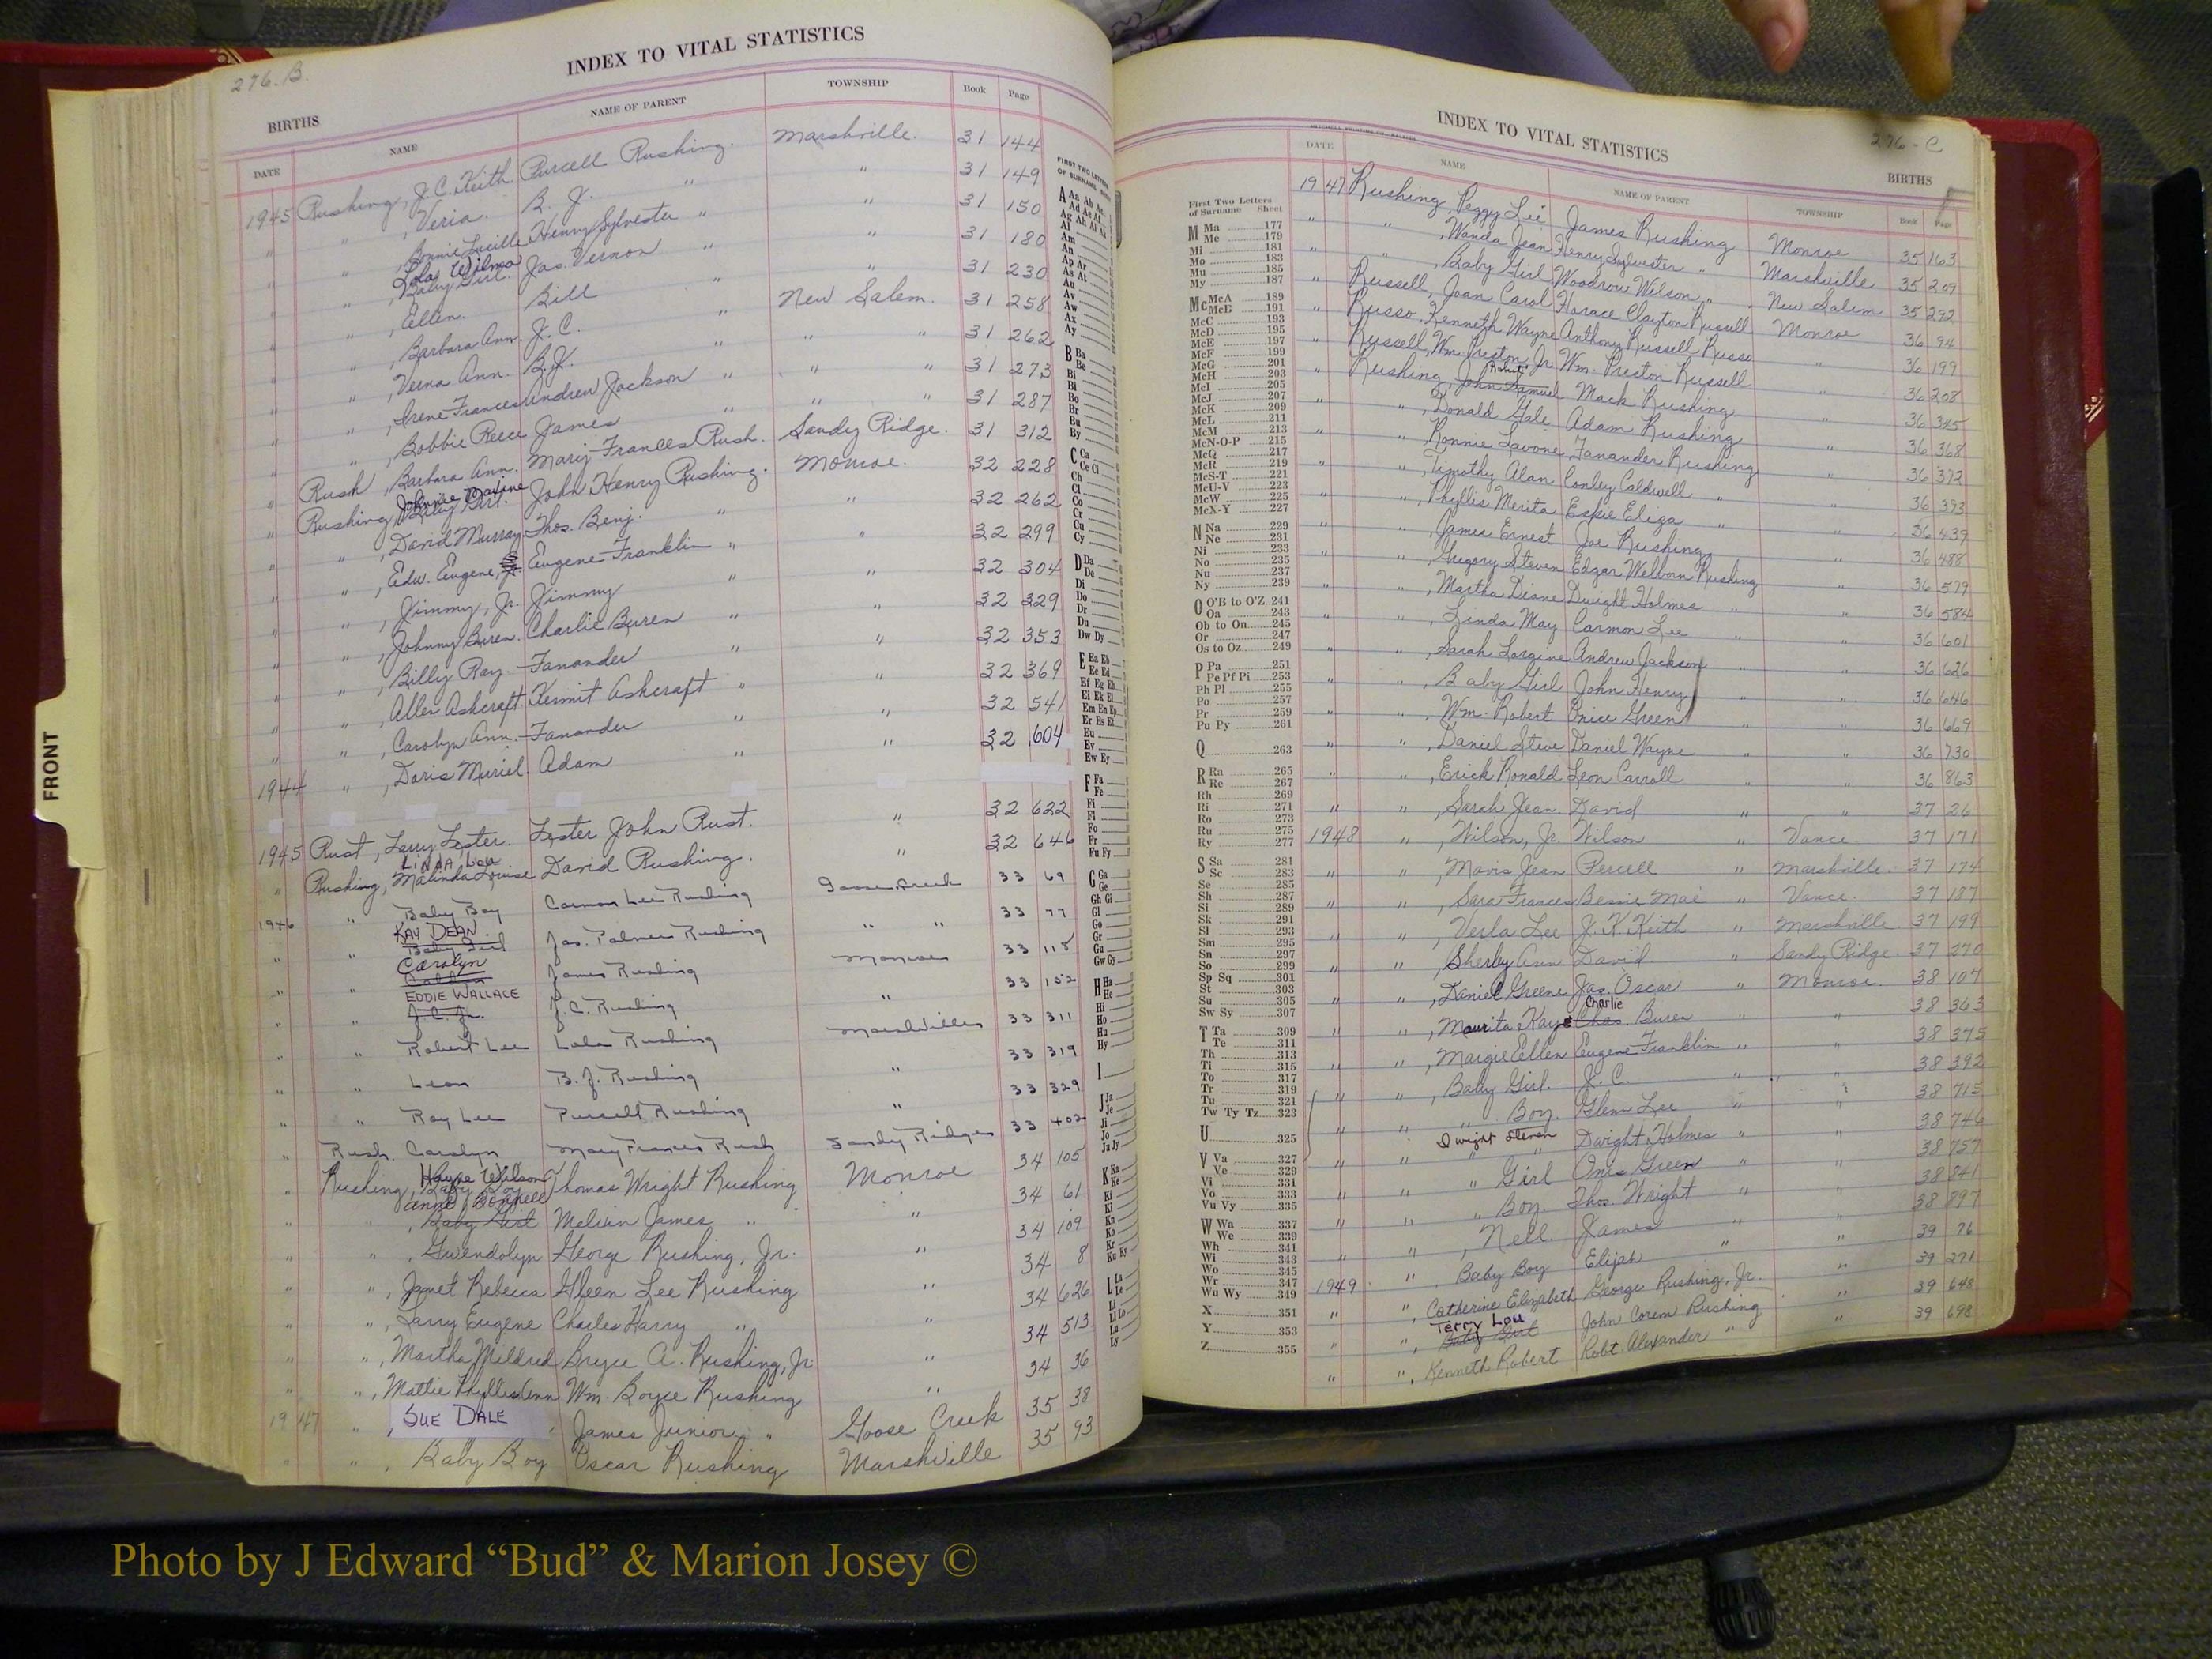 276-B.
INDEX TO VITAL STATISTICS
BIRTHS
DATE NAME NAME OF PARENT TOWNSHIP Book Page
1945 Rushing, J.C. Keith Purcell Rushing Marshville. 31 144
" " , Veria. B. J. " " 31 149
" " , Bonnie Lucille Henry Sylvester " " 31 150
Lola Wilma
" " , Baby Girl. Jas. Vernon " " 31 180
" " , Ellen. Bill " 31 230
" " , Barbara Ann. J. C. " New Salem. 31 258
" " , Verna Ann. B.J. " " " 31 262
" " , Irene Frances Andrew Jackson " " " 31 273
" " , Bobbie Reece James " " " 31 287
" Rush, Barbara Ann. Mary Frances Rush. Sandy Ridge. 31 312
Johnnie Maxine
" Rushing, Baby Girl. John Henry Rushing. Monroe. 32 228
" " , David Murray Thos. Benj. " " 32 262
" " , Edw. Eugene, Eugene Franklin " " 32 299
" " , Jimmy, Jr. Jimmy " " 32 304
" " , Johnny Buren. Charlie Buren " " 32 329
" " , Billy Ray. Fanander " " 32 353
" " , Allen Ashcraft Kermit Ashcraft " " 32 369
" " , Carolyn Ann. Fanander " " 32 541
1944 " , Doris Muriel. Adam " " 32 604
1945 Rust, Larry Lester. Lester John Rust. " 32 622
LINDA Lou
" Rushing, Malinda Louise David Rushing. " 32 646
1946 " Baby Boy Carmon Lee Rushing Goose Creek 33 69
KAY DEAN
" " Baby Girl Jas. Palmer Rushing " " 33 77
Carolyn
" " James Rushing Monroe 33 118
EDDIE WALLACE
" " J.C. Jr. J.C. Rushing " 33 152
" " Robert Lee Lola Rushing Marshville 33 311
" " Leon B. J. Rushing " 33 319
" " Roy Lee Purcell Rushing " 33 329
" Rush. Carolyn Mary Frances Rush Sandy Ridge 33 402
Wayne Wilson
" Rushing, Baby Boy Thomas Wright Rushing Monroe 34 105
Anne Donnell
" " , Baby Girl Melvin James " " 34 61
" " , Gwendolyn George Rushing, Jr. " 34 109
" " , Janet Rebecca Gleen Lee Rushing " 34 8
" " , Larry Eugene Charles Harry " " 34 626
" " , Martha Mildred Bryce A. Rushing, Jr " 34 513
" " , Mattie Phyllis Ann Wm. Boyce Rushing " 34 36
1947 " , SUE DALE James Junior " Goose Creek 35 38
" " , Baby Boy Oscar Rushing Marshville 35 93
FRONT
FIRST TWO LETTERS
OF SURNAME
A Aa Ab Ac
Ad Ae Af
Ag Ah Ai Ak
Al
Am
An
Ap Ar
As At
Au
Av
Aw
Ax
Ay
B Ba
Be
Bi
Bl
Bo
Br
Bu
By
C Ca
Ce Ci
Ch
Cl
Co
Cr
Cu
Cy
D Da
De
Di
Do
Dr
Du
Dw Dy
E Ea Eb
Ec Ed
Ef Eg Eh
Ei Ek El
Em En Ep
Er Es Et
Eu
Ev
Ew Ey
F Fa
Fe
Fi
Fl
Fo
Fr
Fu Fy
G Ga
Ge
Gh Gi
Gl
Go
Gr
Gu
Gw Gy
H Ha
He
Hi
Ho
Hu
Hy
I
J Ja
Je
Ji
Jo
Ju Jy
K Ka
Ke
Ki
Kl
Kn
Ko
Kr
Ku Ky
L La
Le
Li
Ll Lo
Lu
Ly
276-C
INDEX TO VITAL STATISTICS
BIRTHS
First Two Letters
of Surname Sheet
M Ma 177
Me 179
Mi 181
Mo 183
Mu 185
My 187
Mc McA 189
McB 191
McC 193
McD 195
McE 197
McF 199
McG 201
McH 203
McI 205
McJ 207
McK 209
McL 211
McM 213
McN-O-P 215
McQ 217
McR 219
McS-T 221
McU-V 223
McW 225
McX-Y 227
N Na 229
Ne 231
Ni 233
No 235
Nu 237
Ny 239
O O'B to O'Z 241
Oa 243
Ob to On 245
Or 247
Os to Oz 249
P Pa 251
Pe Pf Pi 253
Ph Pl 255
Po 257
Pr 259
Pu Py 261
Q 263
R Ra 265
Re 267
Rh 269
Ri 271
Ro 273
Ru 275
Ry 277
S Sa 281
Sc 283
Se 285
Sh 287
Si 289
Sk 291
Sl 293
Sm 295
Sn 297
So 299
Sp Sq 301
St 303
Su 305
Sw Sy 307
T Ta 309
Te 311
Th 313
Ti 315
To 317
Tr 319
Tu 321
Tw Ty Tz 323
U 325
V Va 327
Ve 329
Vi 331
Vo 333
Vu Vy 335
W Wa 337
We 339
Wh 341
Wi 343
Wo 345
Wr 347
Wu Wy 349
X 351
Y 353
Z 355
DATE NAME NAME OF PARENT TOWNSHIP Book Page
1947 Rushing, Peggy Lee James Rushing Monroe 35 163
" " , Wanda Jean Henry Sylvester " Marshville 35 209
" " , Baby Girl Woodrow Wilson " New Salem 35 292
" Russell, Joan Carol Horace Clayton Russell Monroe 36 94
" Russo, Kenneth Wayne Anthony Russell Russo " 36 199
" Russell, Wm. Preston, Jr. Wm. Preston Russell " 36 208
" Rushing, John Samuel Mack Rushing " 36 345
" " , Donald Gale Adam Rushing " 36 368
" " , Ronnie Lavone Fanander Rushing " 36 372
" " , Timothy Alan Conley Caldwell " " 36 393
" " , Phyllis Merita Espie Eliza " " 36 439
" " , James Ernest Joe Rushing " 36 488
" " , Gregory Steven Edgar Welborn Rushing " 36 579
" " , Martha Diane Dwight Holmes " " 36 584
" " , Linda May Carmon Lee " " 36 601
" " , Sarah Lorgine Andrew Jackson " " 36 626
" " , Baby Girl John Henry " " 36 646
" " , Wm. Robert Onice Green " " 36 669
" " , Daniel Steve Daniel Wayne " " 36 730
" " , Erick Ronald Leon Carroll " " 36 863
" " , Sarah Jean David " " 37 26
1948 " , Wilson, Jr. Wilson " Vance 37 171
" " , Mavis Jean Percell " Marshville. 37 174
" " , Sara Frances Bessie Mae " Vance. 37 187
" " , Verla Lee J. K. Keith " Marshville. 37 199
" " , Sherby Ann David. " Sandy Ridge. 37 270
" " , Daniel Greene Jas. Oscar " Monroe. 38 107
Charlie
" " , Maurita Kaye Chas. Buren " " 38 363
" " , Margie Ellen Eugene Franklin " " 38 375
" " , Baby Girl. J. C. " " 38 392
" " " Boy. Glenn Lee " " 38 715
" " Dwight Steven Dwight Holmes " " 38 746
" " " Girl Onis Green " " 38 757
" " " Boy. Thos. Wright " " 38 841
" " , Nell James " " 38 897
" " , Baby Boy Elijah " " 39 76
1949 " , Catherine Elizabeth George Rushing, Jr. " 39 271
Terry Lou
" " , Baby Girl John Corem Rushing " 39 648
" " , Kenneth Robert Robt. Alexander " " 39 698
Photo by J Edward “Bud” & Marion Josey ©